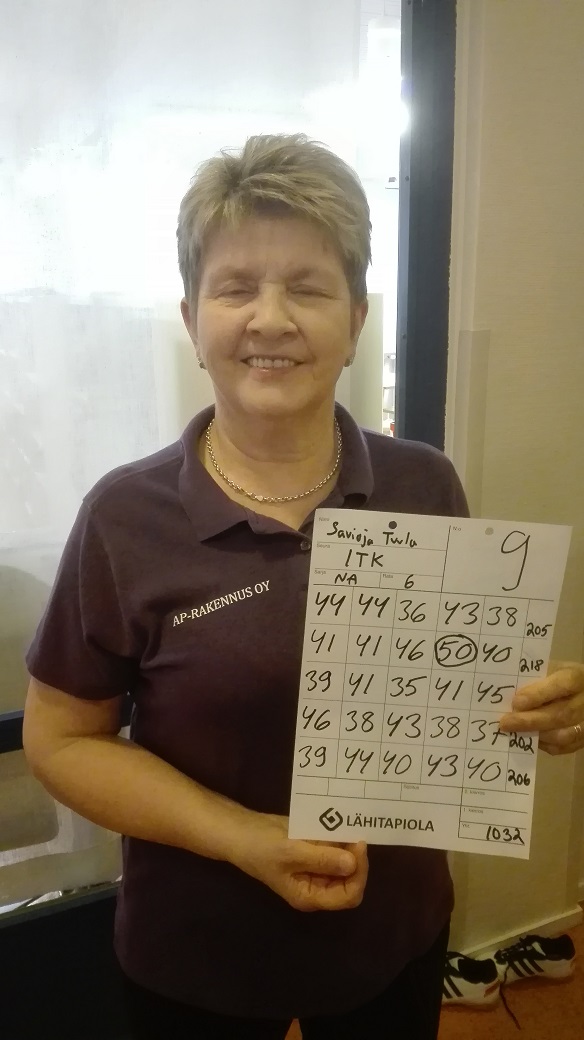 AP-RAKENNUS OY
Nimi
Savioja Tuula
Seura
ITK
Sarja NA Rata 6
N:o 9
44 44 36 43 38 205
41 41 46 50 40 218
39 41 35 41 45
46 38 43 38 37 202
39 44 40 43 40 206
LÄHITAPIOLA
Yht. 1032